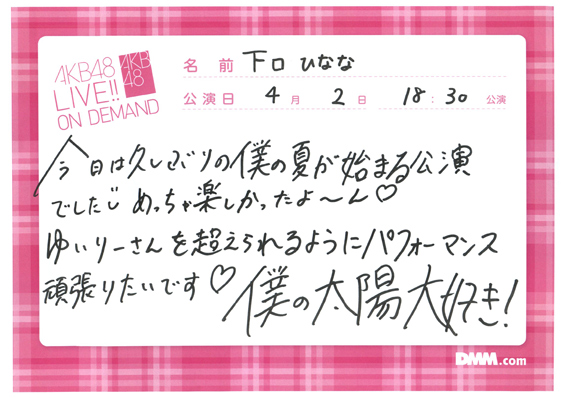 AKB48
LIVE!!
ON DEMAND
AKB
48
名前 下口ひなな
公演日 4月 2日 18:30 公演
今日は久しぶりの僕の夏が始まる公演
でした めっちゃ楽しかったよ〜ん♡
ゆいりーさんを超えられるようにパフォーマンス
頑張りたいです♡ 僕の太陽大好き!
DMM.com